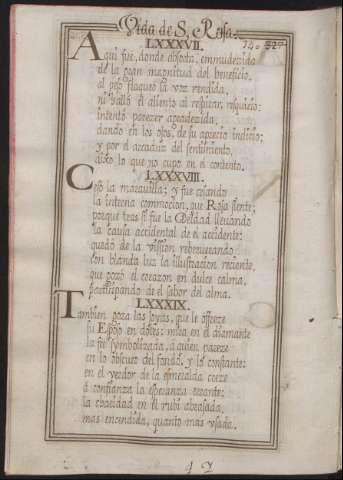 Vida de S. Rosa.
LXXXVII.
Aqui fue, donde absorta, enmudecida
de la gran magnitud del beneficio,
al peso flaqueò la voz rendida,
ni hallò el aliento al respirar, resquicio:
intentò parecer agradecida,
dando en los ojos, de su aprecio indicio;
y por el arcaduz del sentimiento,
dixo lo que no cupo en el contento.
LXXXVIII.
Cesò la maravilla; y fue cesando
la interna commocion, que Rosa siente;
porque tras sì fue la Deidad llevando
la causa accidental de el accidente:
quedò de la vission reberverando
con blanda luz la illustracion reciente,
que gozò el corazon en dulce calma,
participando de el sabor del alma.
LXXXIX.
Tambien goza las joyas, que le ofreze
su Esposo en dotes: mira en el diamante
la fee symbolizada, a quien pareze
en lo obscuro del fondo, y lo constante:
en el verdor de la esmeralda creze
a confianza la esperanza errante:
la charidad en el rubi abrasada,
mas encendida, quanto mas usada.